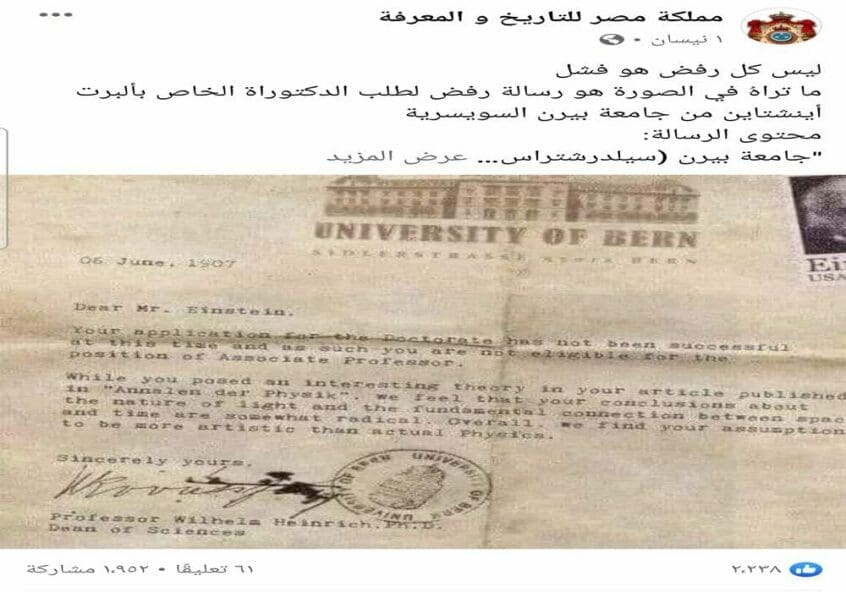 مملكة مصر للتاريخ و المعرفة
١ نيسان
ليس كل رفض هو فشل
ما تراة في الصورة هو رسالة رفض لطلب الدكتوراة الخاص بألبرت
أينشتاين من جامعة بيرن السويسرية
محتوى الرسالة:
"جامعة بيرن (سيلدرشتراس... عرض المزيد
UNIVERSITY OF BERN
SIDLERSTRASSE BERN
Ei
USA
06 June, 1907
Dear Mr. Einstein,
Your application for the Doctorate has not been successful
at this time and as such you are not eligible for the
position of Associate Professor.
While you posed an interesting theory in your article published
in "Annalen der Physik", we feel that your conclusions about
the nature of light and the fundamental connection between spac
and time are somewhat radical. Overall, we find your assumption
to be more artistic than actual Physics.
Sincerely yours,
UNIVERSITY OF BERN
Professor Wilhelm Heinrich, Ph.D.
Dean of Sciences
٢.٢٣٨
٦١ تعليقًا • ١.٩٥٢ مشاركة